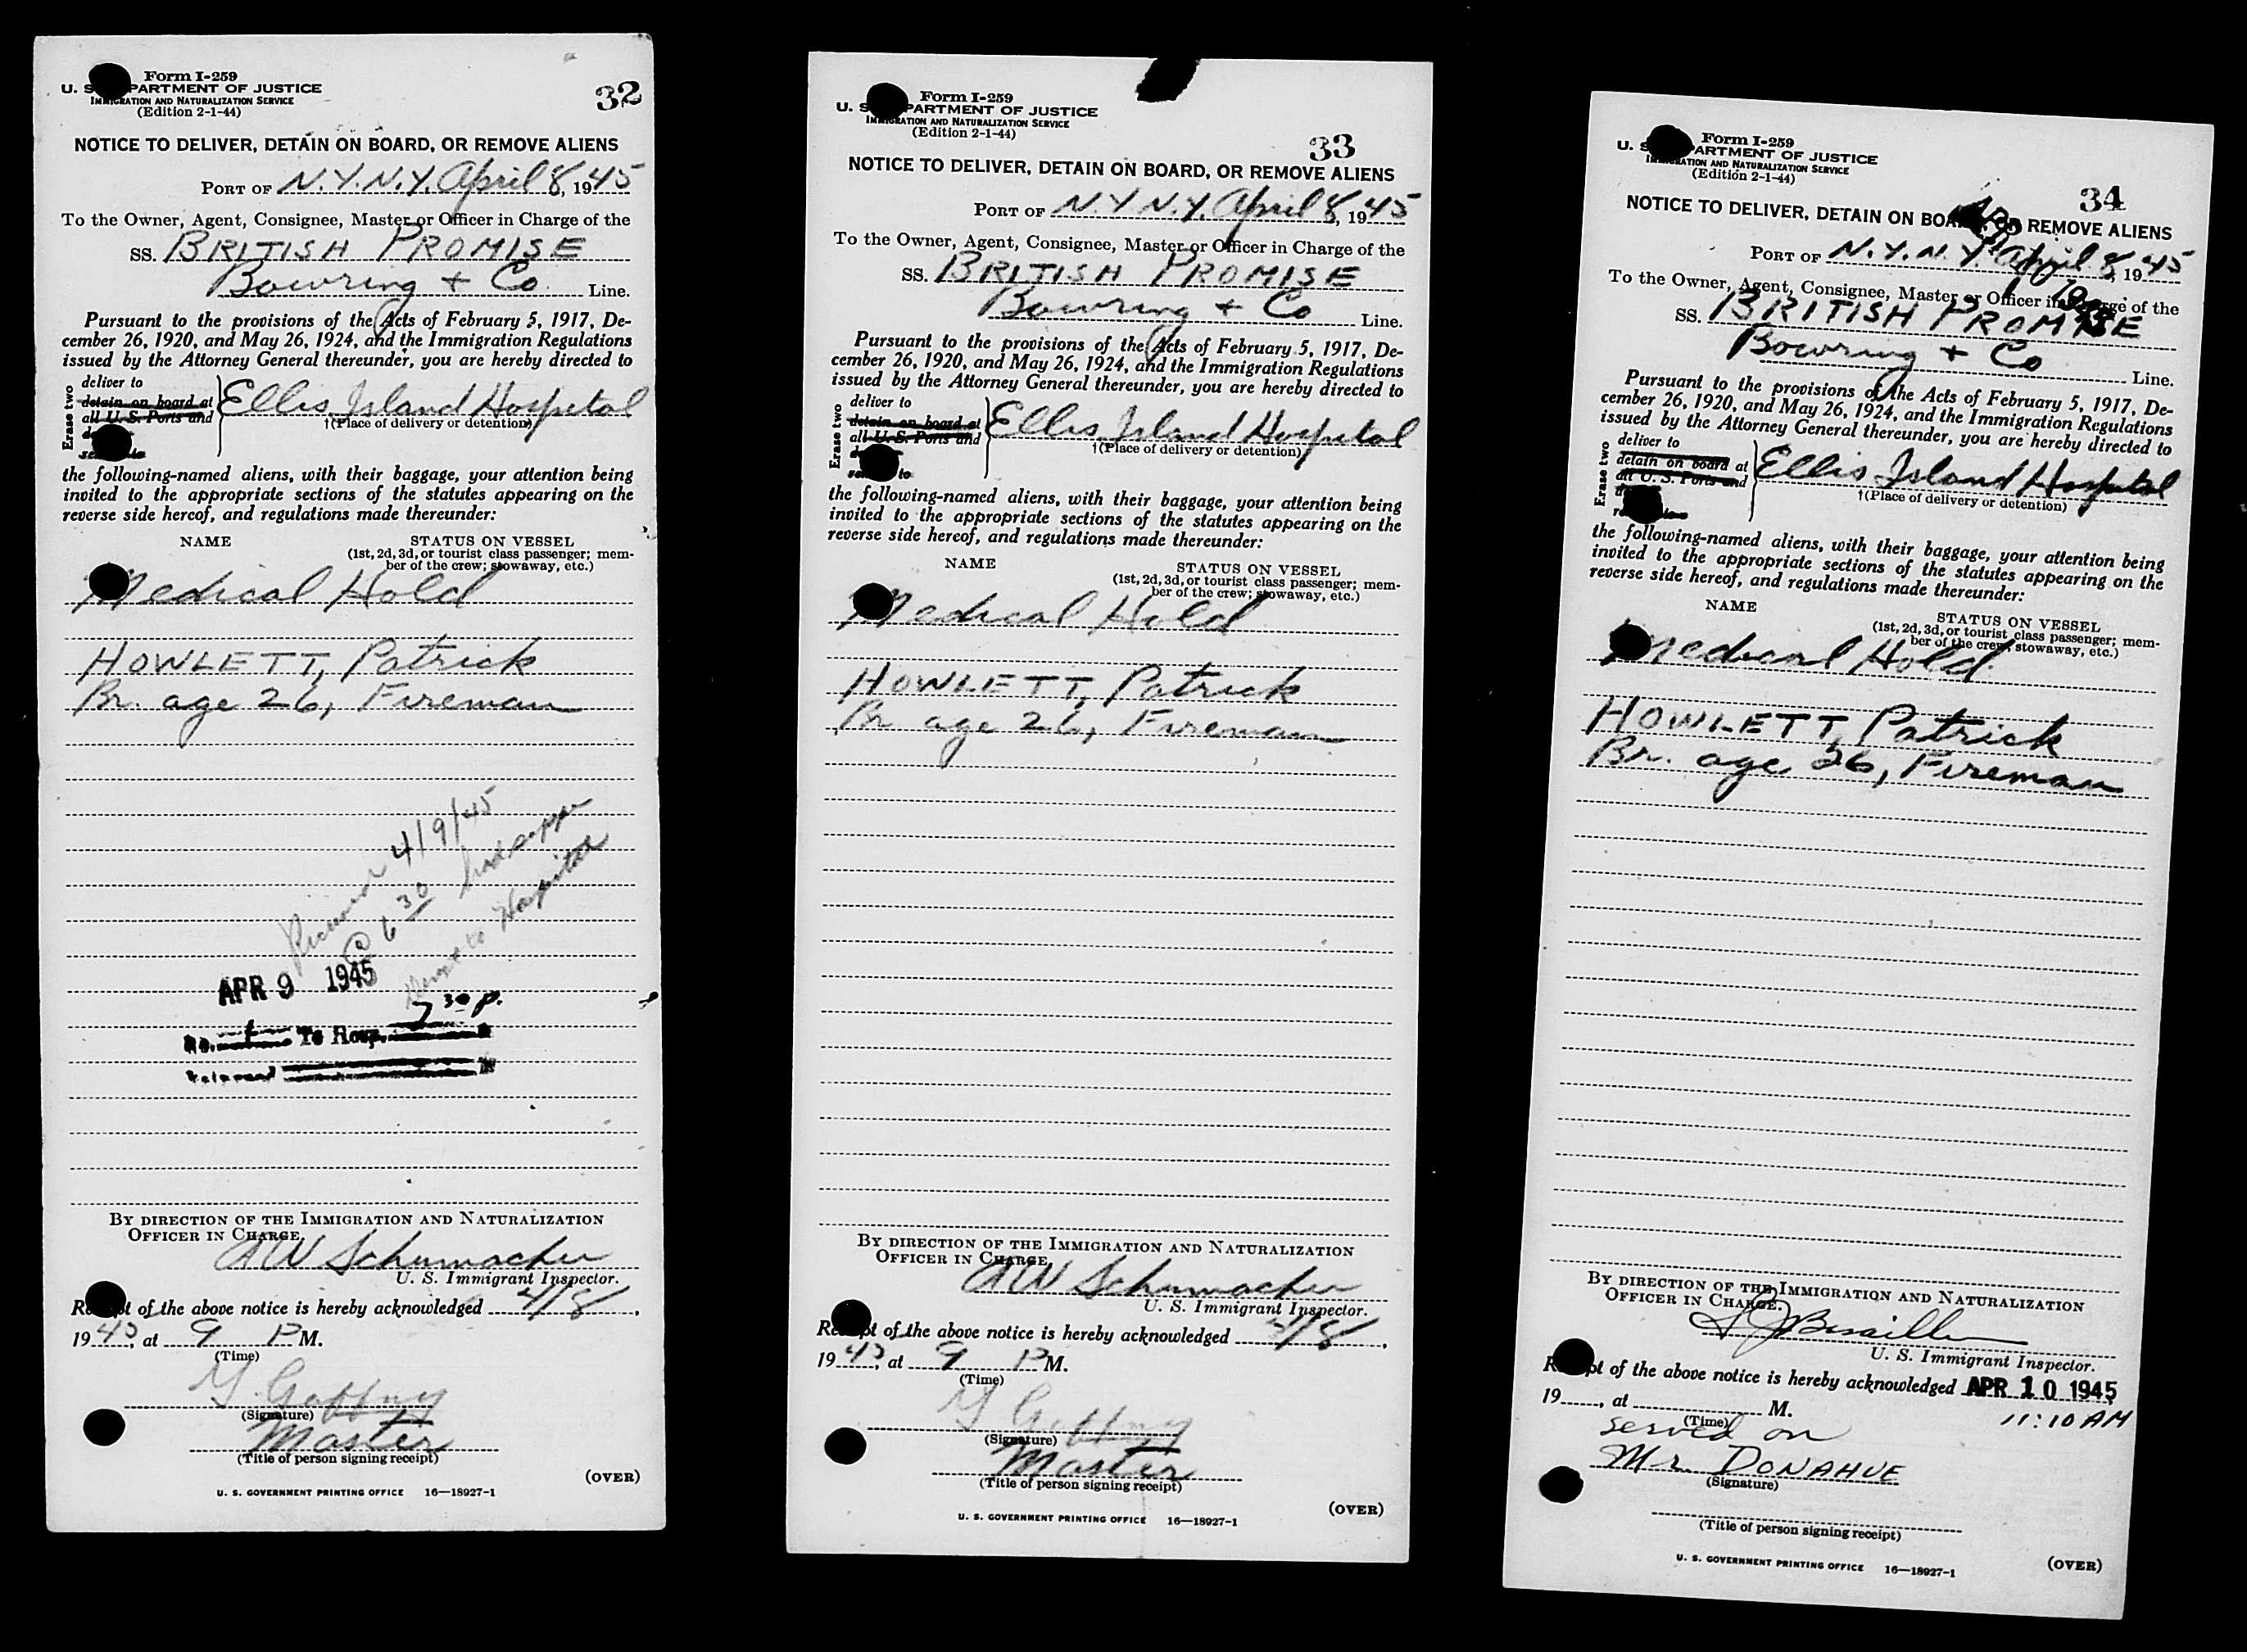 Form I-259
U. S. DEPARTMENT OF JUSTICE
IMMIGRATION AND NATURALIZATION SERVICE
(Edition 2-1-44)
32
NOTICE TO DELIVER, DETAIN ON BOARD, OR REMOVE ALIENS
PORT OF N.Y.N.Y. April 8, 1945
To the Owner, Agent, Consignee, Master or Officer in Charge of the
SS. BRITISH PROMISE
Bowring + Co. Line.
Pursuant to the provisions of the Acts of February 5, 1917, De-
cember 26, 1920, and May 26, 1924, and the Immigration Regulations
issued by the Attorney General thereunder, you are hereby directed to
Erase two
deliver to
detain on board at
all U.S. Ports and
Ellis Island Hospital
†(Place of delivery or detention)
the following-named aliens, with their baggage, your attention being
invited to the appropriate sections of the statutes appearing on the
reverse side hereof, and regulations made thereunder:
NAME
STATUS ON VESSEL
(1st, 2d, 3d, or tourist class passenger; mem-
ber of the crew; stowaway, etc.)
Medical Hold
HOWLETT, Patrick
Br. age 26, Fireman
4/9/45
@ 6 30 had supper
to Hospital
APR 9 1945
7 30 p.
No. 1 To Hosp.
BY DIRECTION OF THE IMMIGRATION AND NATURALIZATION
OFFICER IN CHARGE.
AW Schumacher
U. S. Immigrant Inspector.
Receipt of the above notice is hereby acknowledged 4/8,
1945, at 9 P M.
(Time)
G Gaffny
(Signature)
Master
(Title of person signing receipt)
(OVER)
U. S. GOVERNMENT PRINTING OFFICE 16—18927-1
Form I-259
U. S. DEPARTMENT OF JUSTICE
IMMIGRATION AND NATURALIZATION SERVICE
(Edition 2-1-44)
33
NOTICE TO DELIVER, DETAIN ON BOARD, OR REMOVE ALIENS
PORT OF N.Y N.Y. April 8, 1945
To the Owner, Agent, Consignee, Master or Officer in Charge of the
SS. BRITISH PROMISE
Bowring + Co Line.
Pursuant to the provisions of the Acts of February 5, 1917, De-
cember 26, 1920, and May 26, 1924, and the Immigration Regulations
issued by the Attorney General thereunder, you are hereby directed to
Erase two
deliver to
detain on board at
all U.S. Ports and
to
Ellis Island Hospital
†(Place of delivery or detention)
the following-named aliens, with their baggage, your attention being
invited to the appropriate sections of the statutes appearing on the
reverse side hereof, and regulations made thereunder:
NAME
STATUS ON VESSEL
(1st, 2d, 3d, or tourist class passenger; mem-
ber of the crew; stowaway, etc.)
Medical Hold
HOWLETT, Patrick
Br age 26, Fireman
BY DIRECTION OF THE IMMIGRATION AND NATURALIZATION
OFFICER IN CHARGE.
AW Schumacher
U. S. Immigrant Inspector.
Receipt of the above notice is hereby acknowledged 4/8,
1945, at 9 P M.
(Time)
G Gaffny
(Signature)
Master
(Title of person signing receipt)
(OVER)
U. S. GOVERNMENT PRINTING OFFICE 16—18927-1
Form I-259
U. S. DEPARTMENT OF JUSTICE
IMMIGRATION AND NATURALIZATION SERVICE
(Edition 2-1-44)
34
NOTICE TO DELIVER, DETAIN ON BOARD, OR REMOVE ALIENS
PORT OF N.Y.N.Y. April 8, 1945
To the Owner, Agent, Consignee, Master or Officer in Charge of the
SS. BRITISH PROMISE
Bowring + Co Line.
Pursuant to the provisions of the Acts of February 5, 1917, De-
cember 26, 1920, and May 26, 1924, and the Immigration Regulations
issued by the Attorney General thereunder, you are hereby directed to
Erase two
deliver to
detain on board at
all U.S. Ports and
Ellis Island Hospital
†(Place of delivery or detention)
the following-named aliens, with their baggage, your attention being
invited to the appropriate sections of the statutes appearing on the
reverse side hereof, and regulations made thereunder:
NAME
STATUS ON VESSEL
(1st, 2d, 3d, or tourist class passenger; mem-
ber of the crew, stowaway, etc.)
Medical Hold
HOWLETT, Patrick
Br. age 26, Fireman
BY DIRECTION OF THE IMMIGRATION AND NATURALIZATION
OFFICER IN CHARGE.
U. S. Immigrant Inspector.
Receipt of the above notice is hereby acknowledged APR 10 1945
19, at M. 11:10 AM
(Time)
served on
Mr. DONAHUE
(Signature)
(Title of person signing receipt)
(OVER)
U. S. GOVERNMENT PRINTING OFFICE 16—18927-1